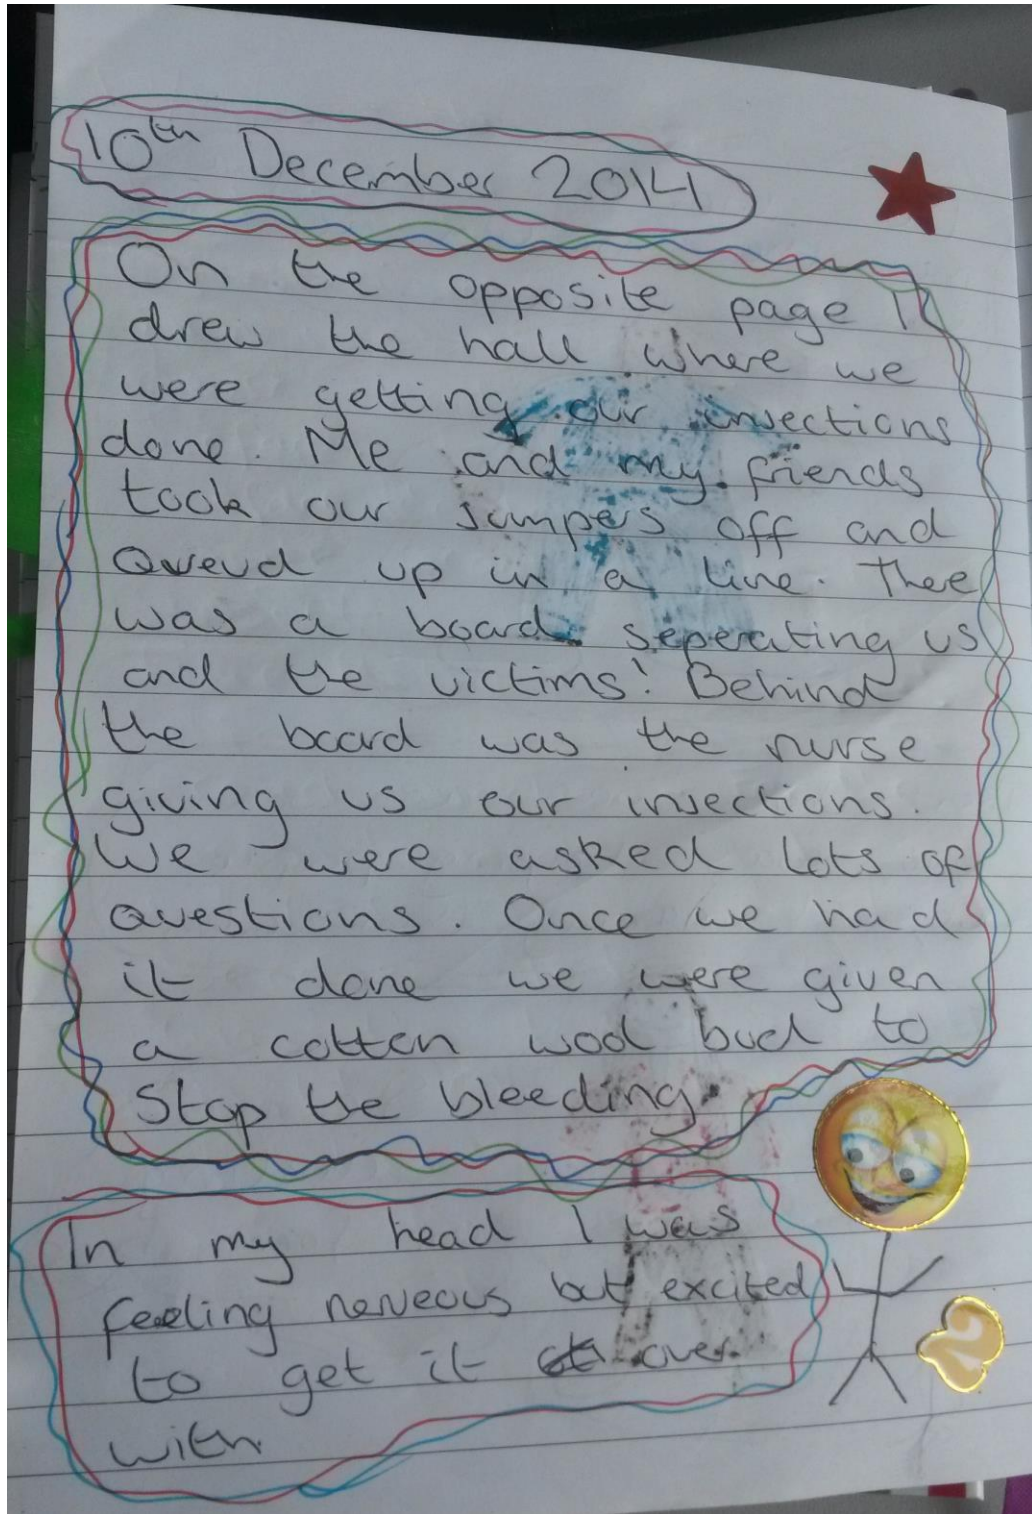 10th December 2014
On the opposite page I
drew the hall where we
were getting our injections
done. Me and my friends
took our jumpers off and
Queud up in a line. There
was a board seperating us
and the victims! Behind
the board was the nurse
giving us our injections.
We were asked lots of
questions. Once we had
it done we were given
a cotten wool bud to
stop the bleeding.
In my head I was
feeling nerveous but excited
to get it over
with
2